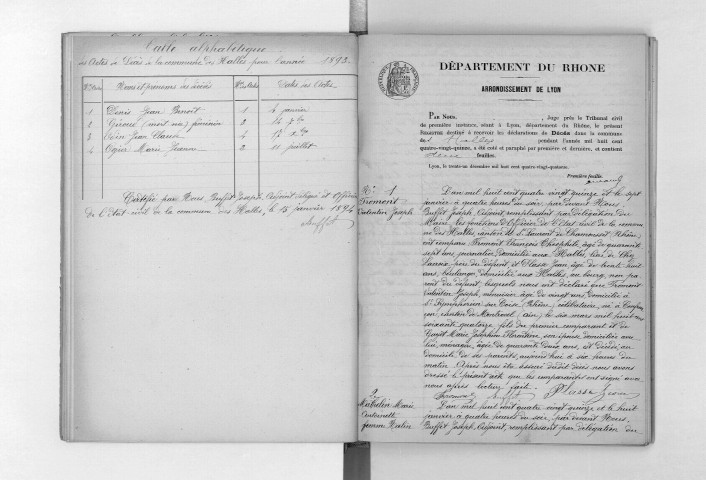 Table alphabétique
des Actes de Décès de la commune des Halles pour l'année 1893.
Nos d'ordre Noms et prénoms des décédés Nos des Actes Dates des Actes
1 Denis Jean Benoit 1 4 janvier
2 Giroud (mort né) féminin 3 24 7bre
3 Jean Claude 4 13 Xbre
4 Ogier Marie 2 11 juillet
Certifié par Nous Buffet Joseph, Adjoint délégué et Officier
de l'Etat-civil de la commune des Halles, le 15 janvier 1894
Buffet
DÉPARTEMENT DU RHONE
ARRONDISSEMENT DE LYON
PAR NOUS, , Juge près le Tribunal civil
de première instance, séant à Lyon, département du Rhône, le présent
REGISTRE destiné à recevoir les déclarations de Décès dans la commune
des Halles pendant l'année mil huit cent
quatre-vingt-quinze, a été coté et paraphé par première et dernière, et contient
feuilles.
Lyon, le trente-un décembre mil huit cent quatre-vingt-quatorze.
Première feuille.
No 1
Fromont
Valentin Joseph
L'an mil huit cent quatre vingt quinze et le sept
janvier à quatre heures du soir, par devant Nous
Buffet Joseph, Adjoint, remplissant par délégation du
Maire les fonctions d'Officier de l'Etat civil de la commu
ne des Halles canton de St Laurent de Chamousset Rhône
ont comparu Fromont François Théophile, âgé de quarante
sept ans, journalier, domicilié aux Halles,
père du défunt, et Classe Jean, âgé de trente huit
ans, boulanger, domicilié aux Halles, au bourg, non pa
rent du défunt, lesquels nous ont déclaré que Fromont
Valentin Joseph, menuisier âgé de vingt ans, domicilié à
St Symphorien sur Coise (Rhône) célibataire, né à
canton de Montrevel (Ain) le six mars mil huit cent
soixante quatorze fils du premier comparant et de
Guyot Marie Joséphine Florentine, son épouse domiciliée avec
lui, ménagère, âgée de quarante deux ans, est décédé au
domicile de ses parents, aujourd'hui à six heures du
matin. Après nous être assuré dudit décès nous avons
dressé le présent acte que les comparants ont signé avec
nous après lecture faite.
Fromont Buffet Classe Jean
2
Mathelin Marie
Antoinette
femme
L'an mil huit cent quatre vingt quinze et le huit
janvier à quatre heures du soir, par devant Nous,
Buffet Joseph, Adjoint, remplissant par délégation du